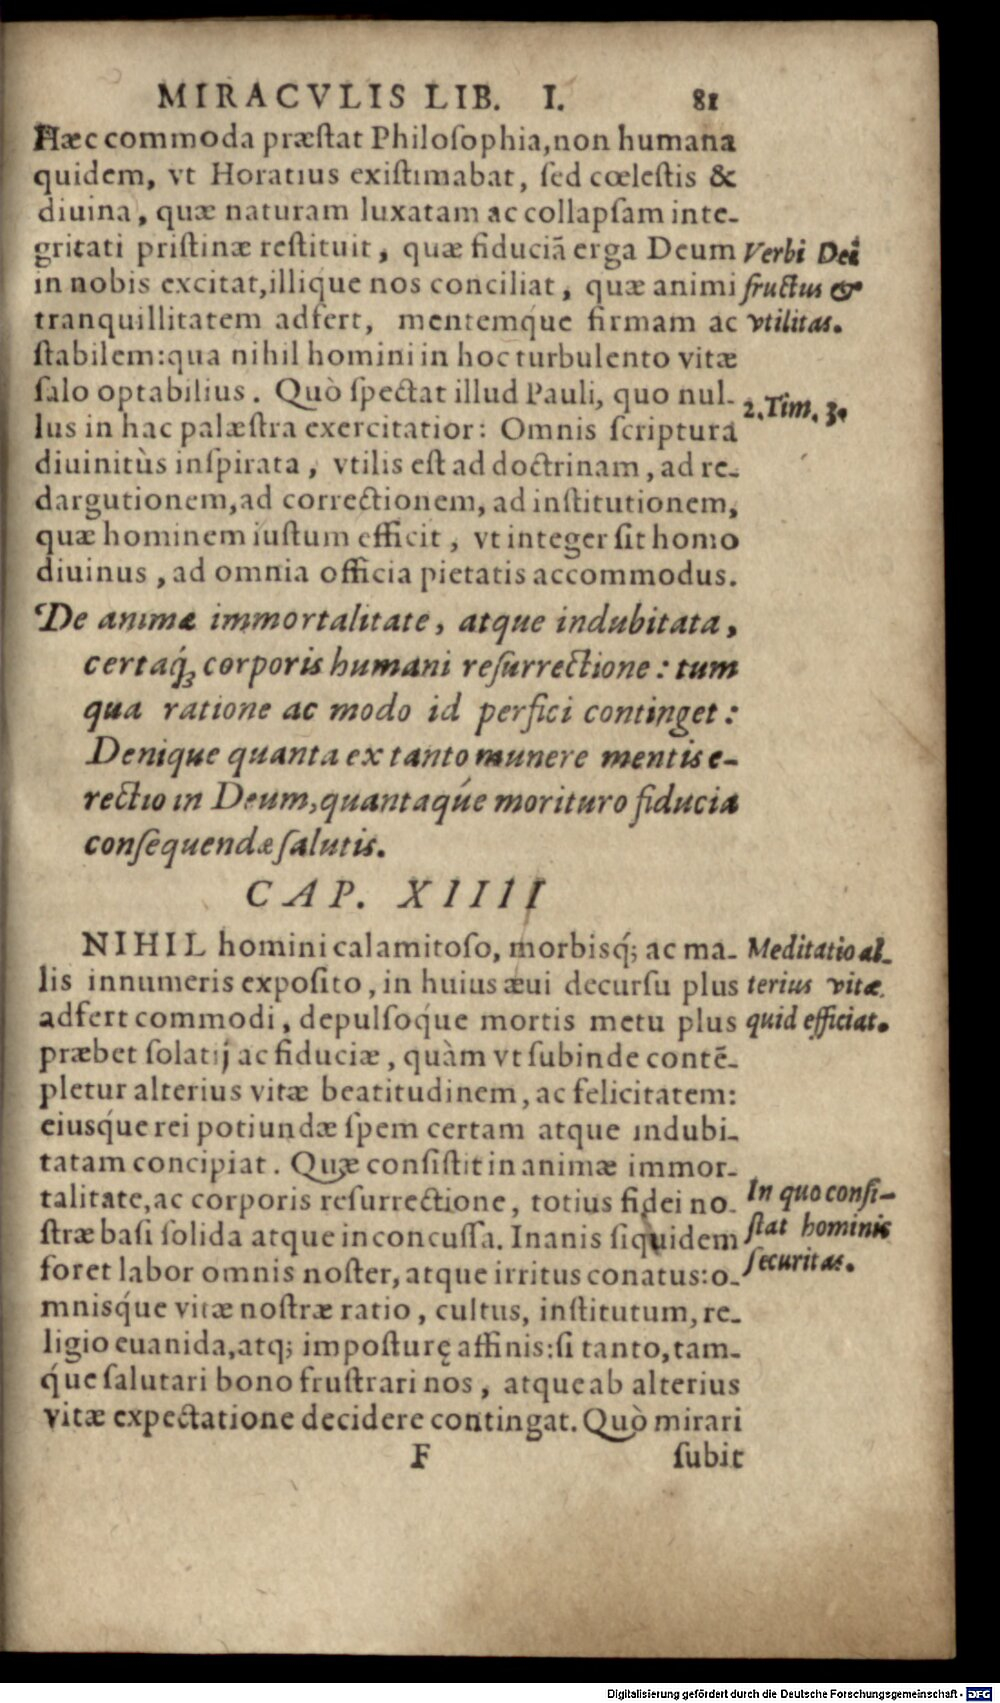 MIRACVLIS LIB. I. 81
Hæc commoda præſtat Philoſophia, non humana
quidem, vt Horatius exiſtimabat, ſed cœleſtis &
diuina, quæ naturam luxatam ac collapſam inte-
gritati priſtinæ reſtituit, quæ fiduciã erga Deum
in nobis excitat, illique nos conciliat, quæ animi
tranquillitatem adfert, mentemq́ue firmam ac
ſtabilem: qua nihil homini in hoc turbulento vitæ
ſalo optabilius. Quò ſpectat illud Pauli, quo nul-
lus in hac palæſtra exercitatior: Omnis ſcriptura
diuinitùs inſpirata, vtilis eſt ad doctrinam, ad re-
dargutionem, ad correctionem, ad inſtitutionem,
quæ hominem iuſtum efficit, vt integer ſit homo
diuinus, ad omnia officia pietatis accommodus.
Verbi Dei
fructus &
vtilitas.
2. Tim. 3.
De animæ immortalitate, atque indubitata,
certaq́ꝫ corporis humani reſurrectione: tum
qua ratione ac modo id perfici continget:
Denique quanta ex tanto munere mentis e-
rectio in Deum, quantaq́ue morituro fiducia
conſequendæ ſalutis.
CAP. XIIII
NIHIL homini calamitoſo, morbisq́; ac ma-
lis innumeris expoſito, in huius æui decurſu plus
adfert commodi, depulſoq́ue mortis metu plus
præbet ſolatij ac fiduciæ, quàm vt ſubinde contẽ-
pletur alterius vitæ beatitudinem, ac felicitatem:
eiusq́ue rei potiundæ ſpem certam atque indubi-
tatam concipiat. Quæ conſiſtit in animæ immor-
talitate, ac corporis reſurrectione, totius fidei no-
ſtræ baſi ſolida atque inconcuſſa. Inanis ſiquidem
foret labor omnis noſter, atque irritus conatus: o-
mnisq́ue vitæ noſtræ ratio, cultus, inſtitutum, re-
ligio euanida, atq; impoſturę affinis: ſi tanto, tam-
q́ue ſalutari bono fruſtrari nos, atque ab alterius
vitæ expectatione decidere contingat. Quò mirari
Meditatio al-
terius vitæ
quid efficiat.
In quo conſi-
ſtat hominis
ſecuritas.
F ſubit
Digitalisierung gefördert durch die Deutsche Forschungsgemeinschaft - DFG